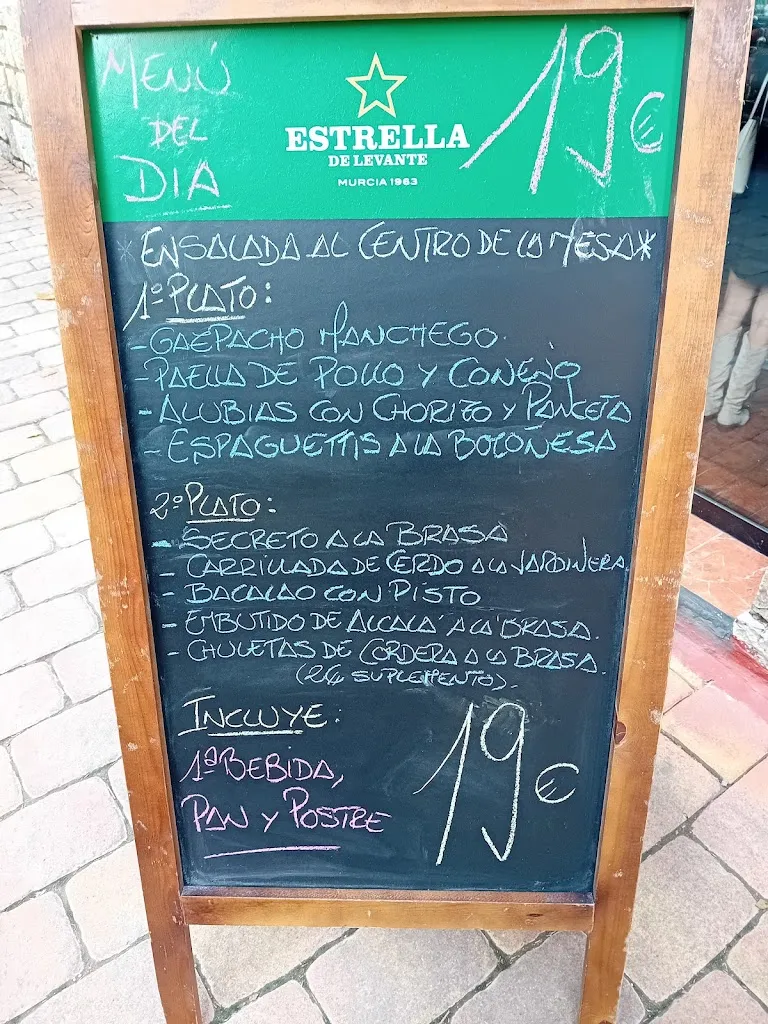 MENÚ
DEL
DIA
ESTRELLA
DE LEVANTE
MURCIA 1963
19€
*ENSALADA AL CENTRO DE LA MESA*
1º PLATO:
-GAZPACHO MANCHEGO.
-PAELLA DE POLLO Y CONEJO
-ALUBIAS CON CHORIZO Y PANCETA
-ESPAGUETTIS A LA BOLOÑESA
2º PLATO:
- SECRETO A LA BRASA
- CARRILLADA DE CERDO A LA JARDINERA
- BACALAO CON PISTO
- EMBUTIDO DE ALCALÁ A LA BRASA.
- CHULETAS DE CORDERO A LA BRASA.
(2€ SUPLEMENTO).
INCLUYE:
1ª BEBIDA,
PAN Y POSTRE
19€